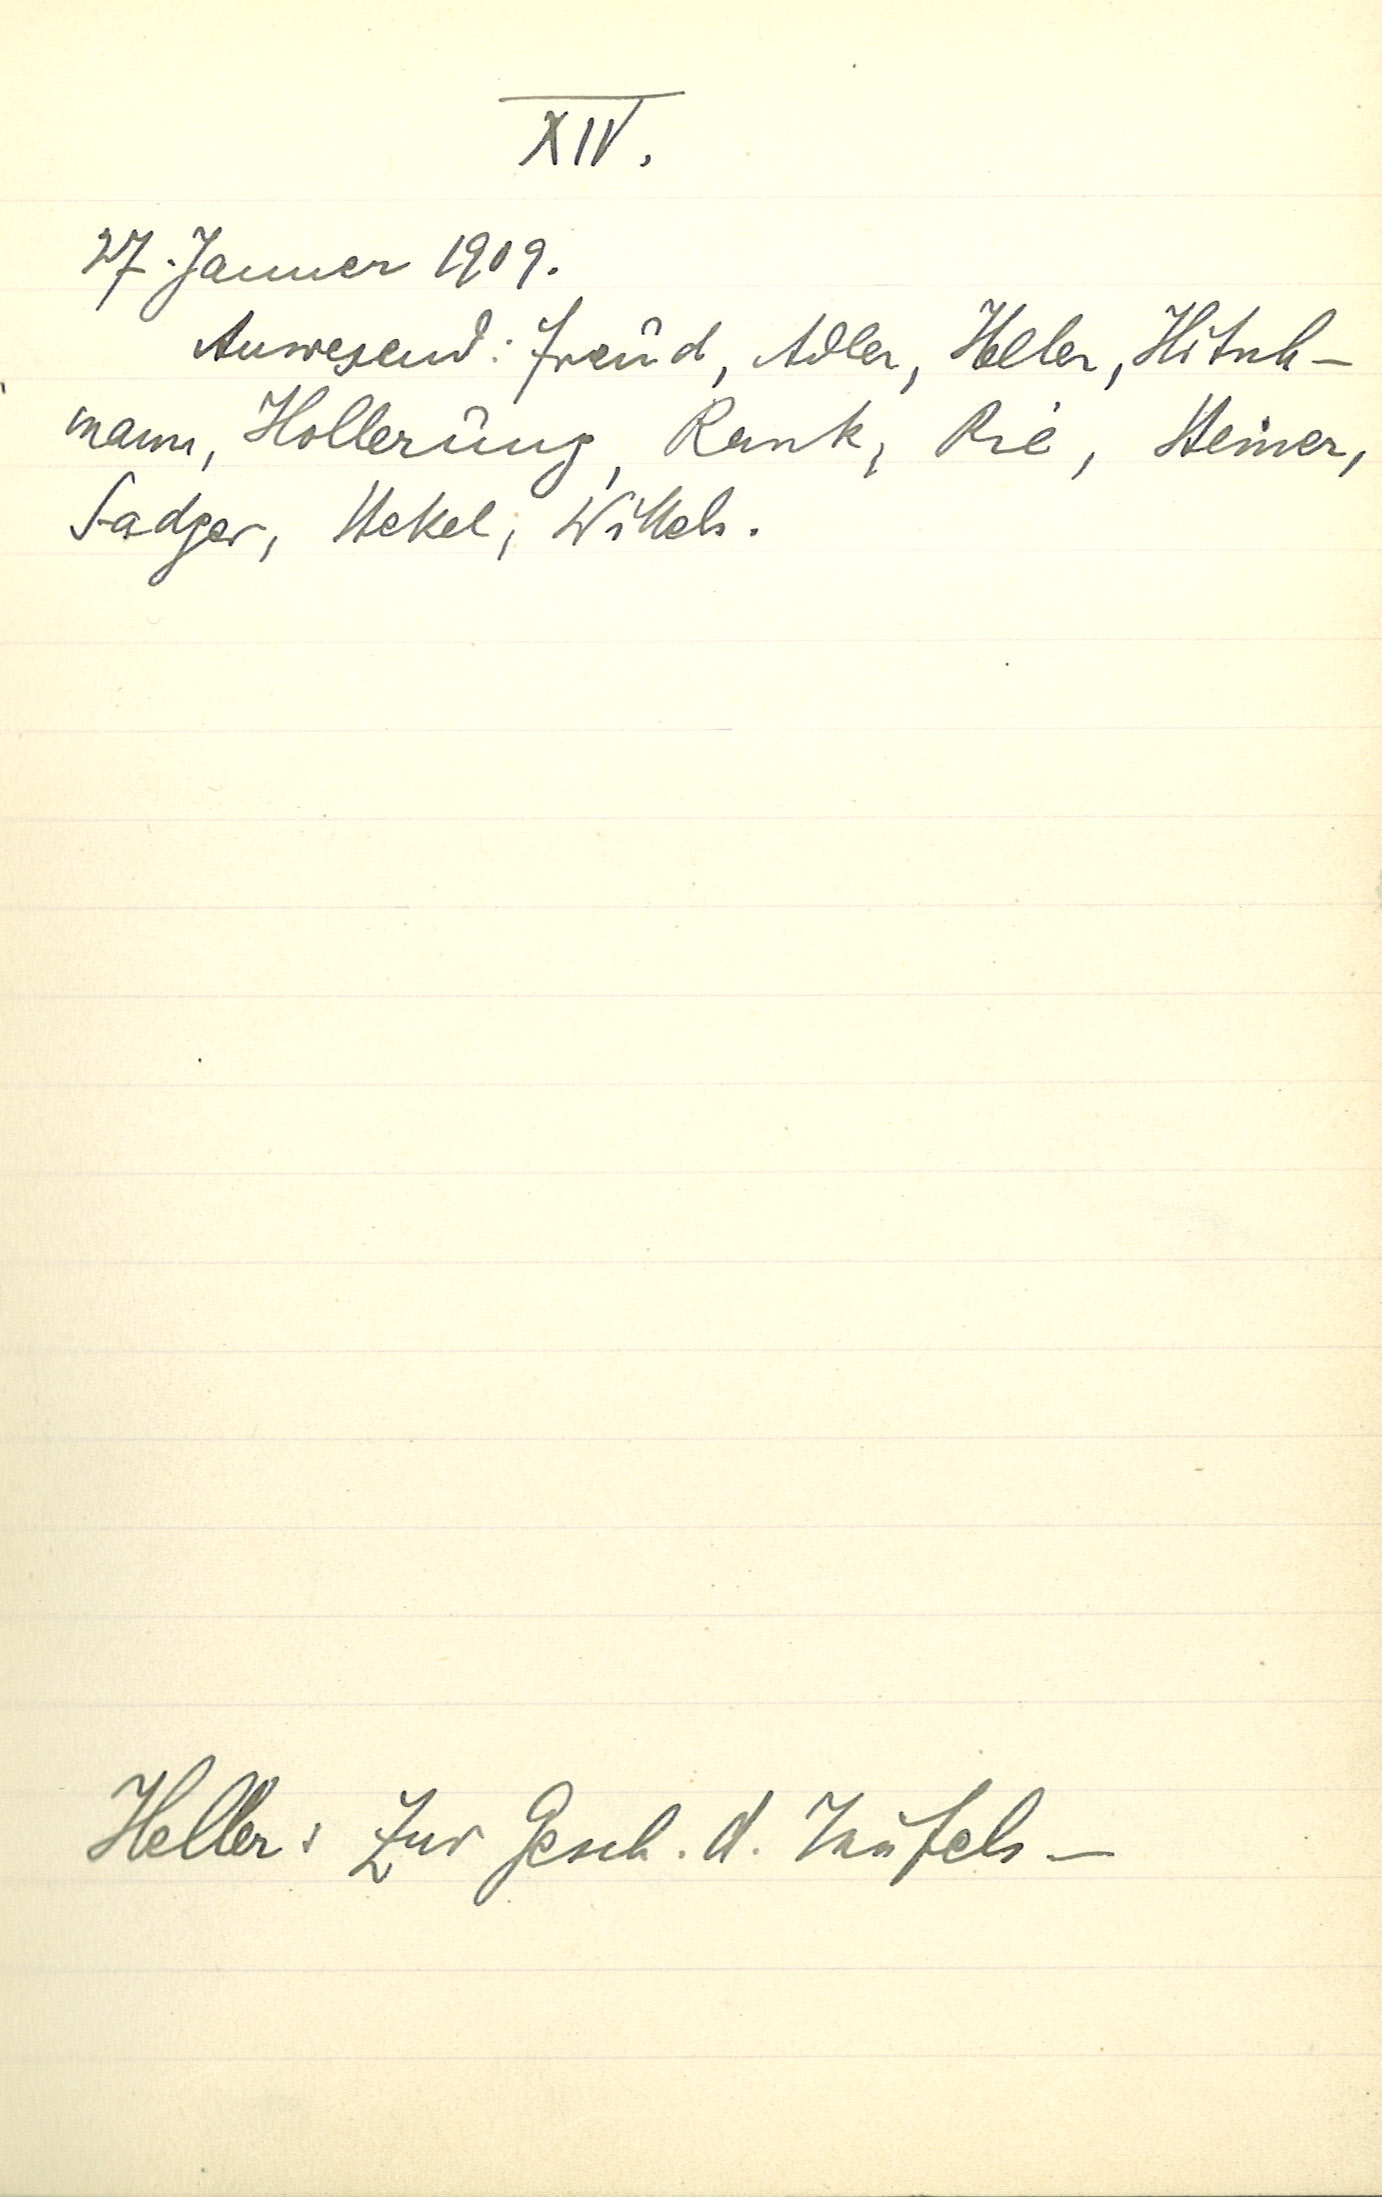 XIV.
27. Januar 1909.
Anwesend: Freud, Adler, Heller, Hitsch-
mann, Hollerung, Rank, Rie, Steiner,
Sadger, Stekel, Wittels.
Heller: Zur Gesch. d. Teufels —